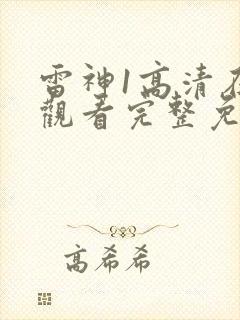 雷神1高清
觀看完整免
高希希